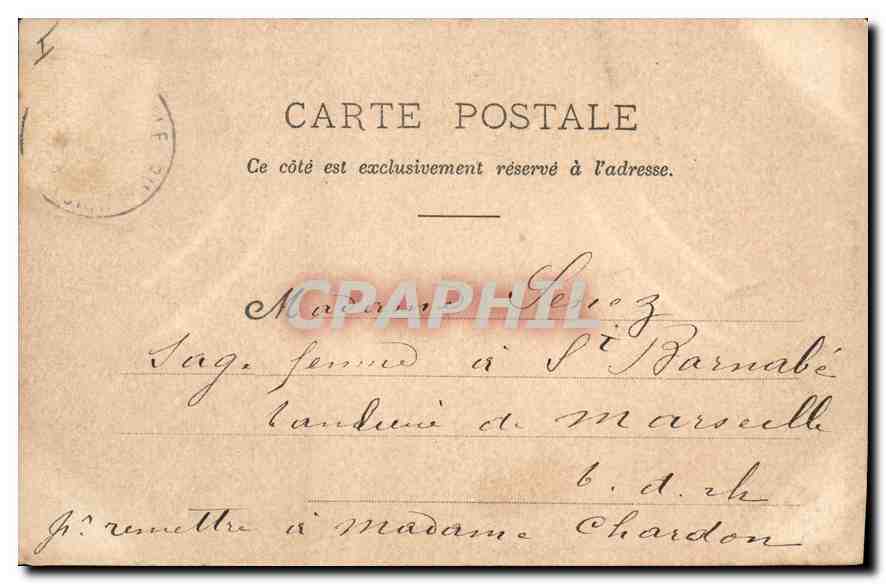 I
CARTE POSTALE
Ce côté est exclusivement réservé à l'adresse.
CPAPHIL
Madame Senez
Sage femme à St Barnabé
banlieue de Marseille
b. d. rh
pr. remettre à madame Chardon